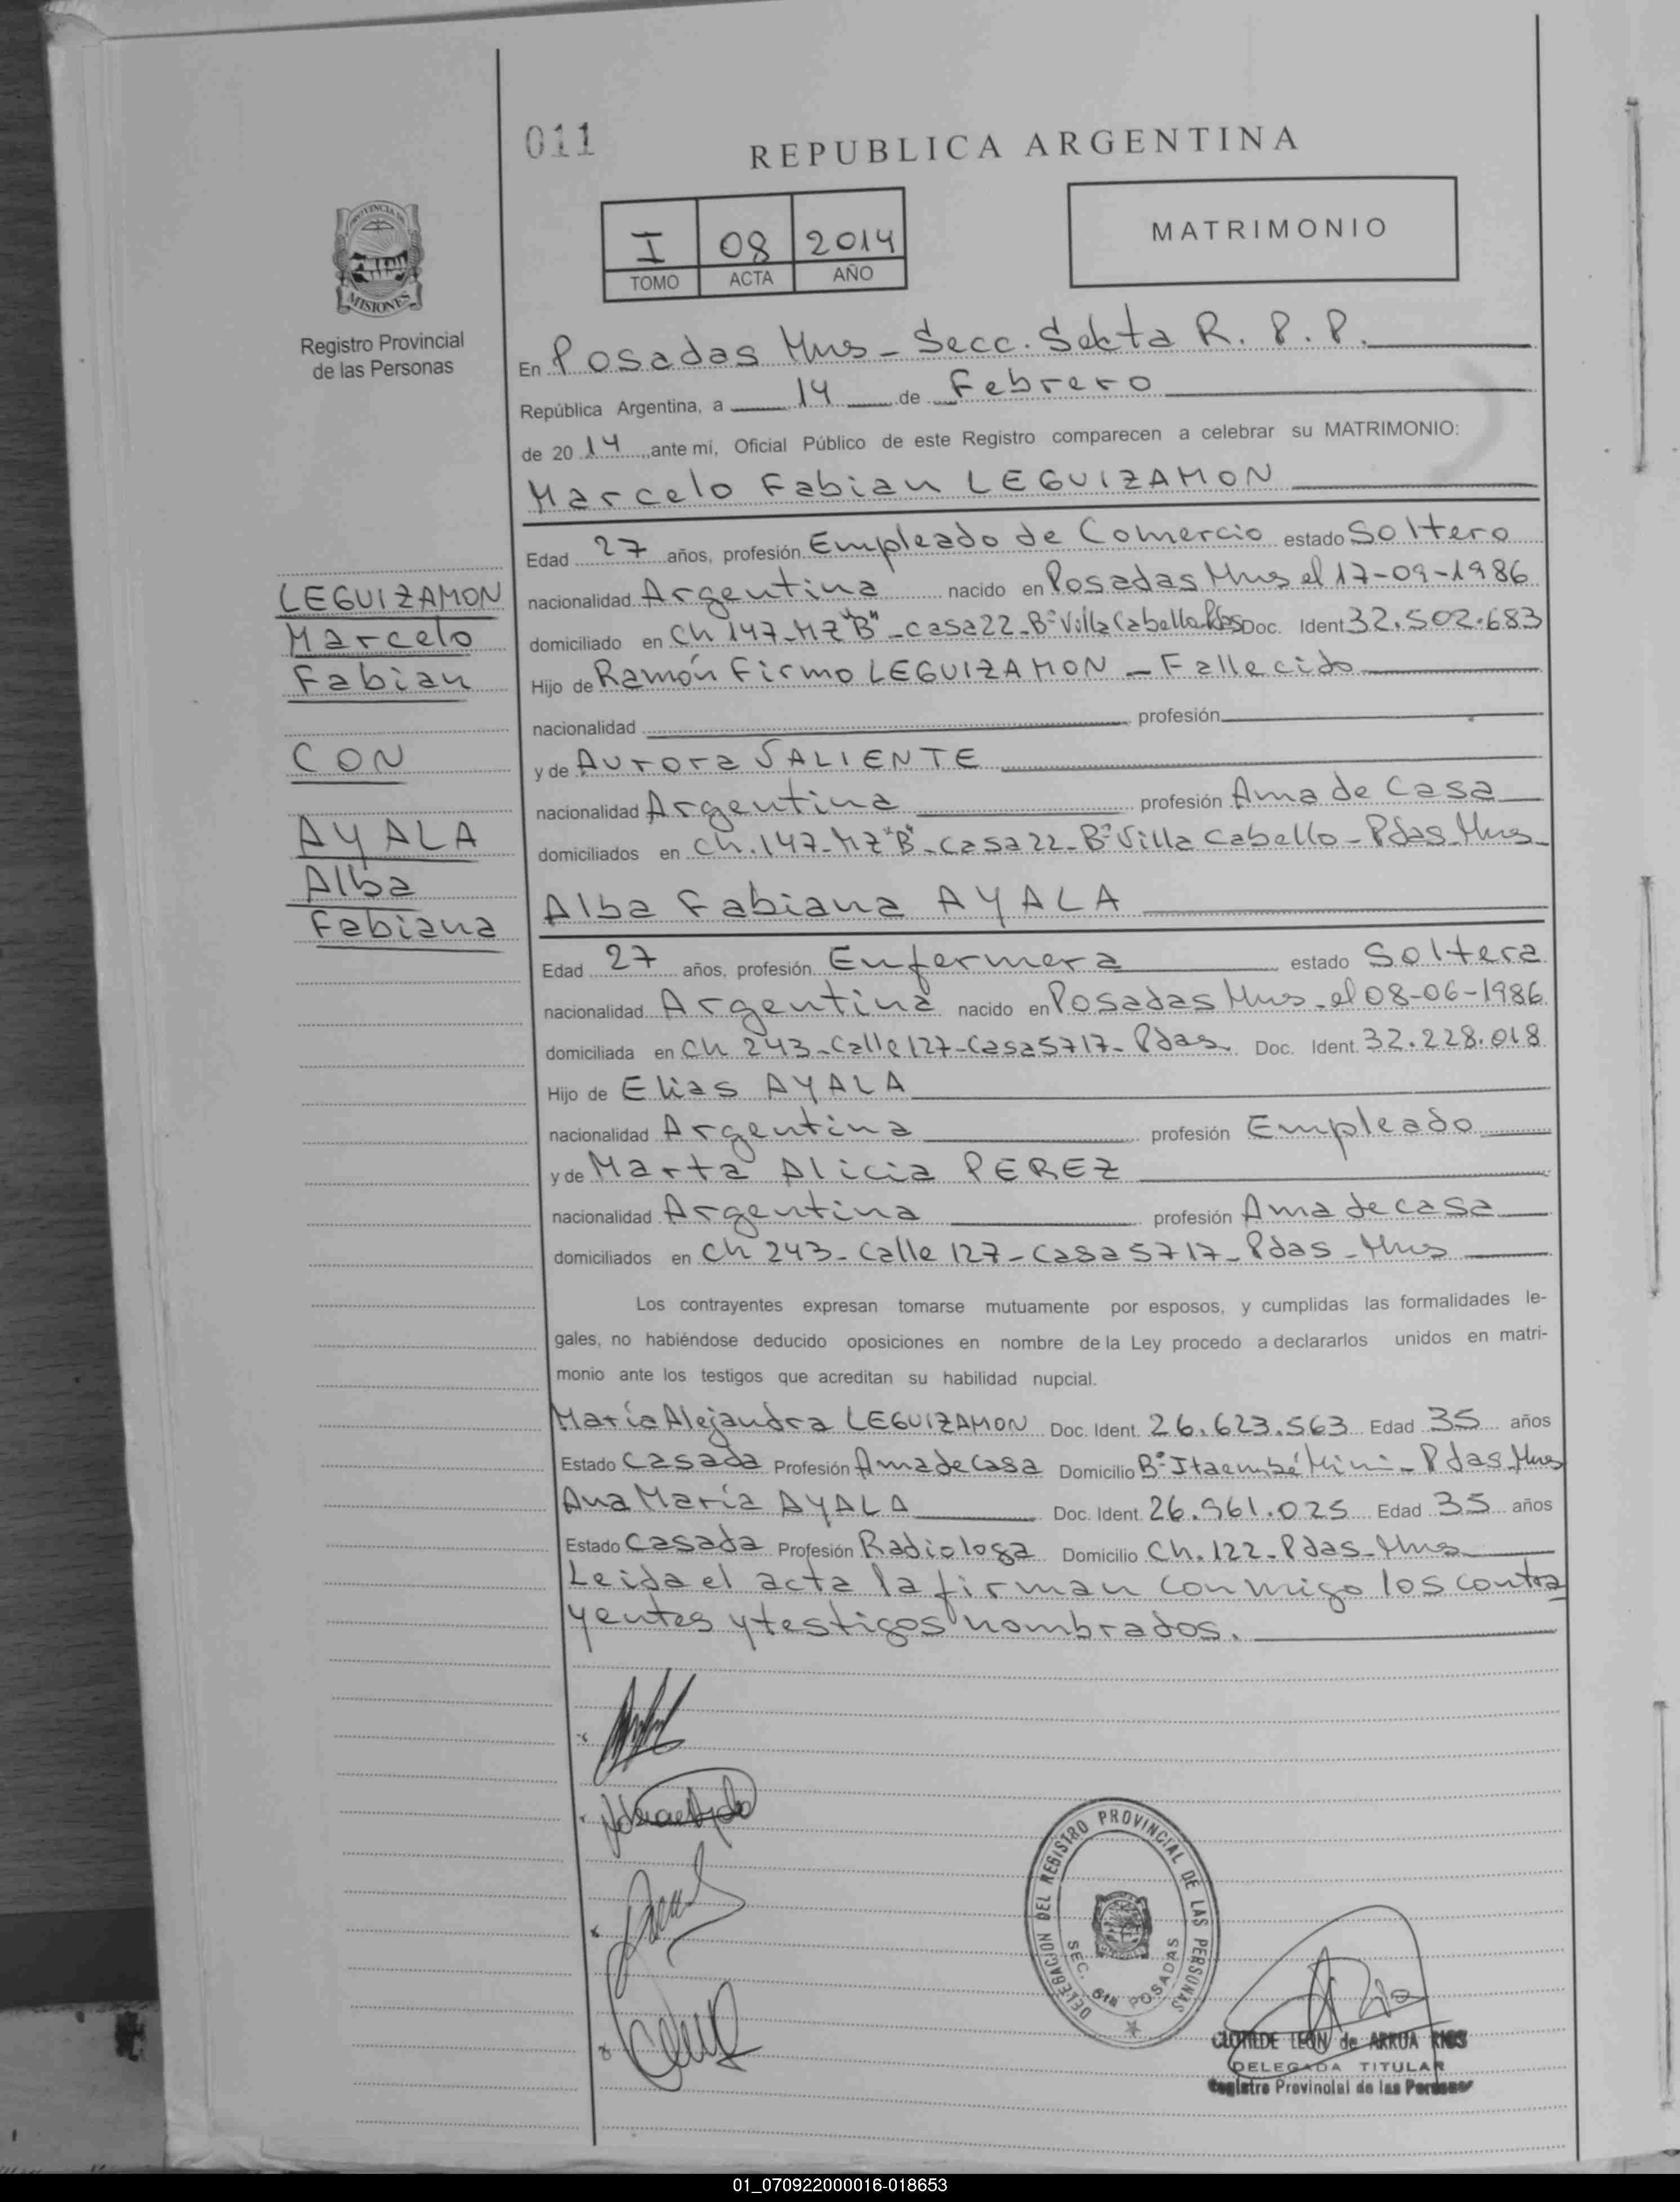 011
REPUBLICA ARGENTINA
PROVINCIA DE
MISIONES
Registro Provincial
de las Personas
I 08 2014
TOMO ACTA AÑO
MATRIMONIO
En Posadas Mnes - Secc. Sexta R. P. P.
República Argentina, a 14 de Febrero
de 2014, ante mí, Oficial Público de este Registro comparecen a celebrar su MATRIMONIO:
Marcelo Fabian LEGUIZAMON
Edad 27 años, profesión Empleado de Comercio estado Soltero
LEGUIZAMON
Marcelo
Fabian
CON
AYALA
Alba
Fabiana
nacionalidad Argentina nacido en Posadas Mnes el 17-09-1986
domiciliado en Ch 147-MZ"B"-casa 22-B° Villa Cabello Pdas Doc. Ident 32.502.683
Hijo de Ramón Firmo LEGUIZAMON - Fallecido
nacionalidad profesión
y de Aurora SALIENTE
nacionalidad Argentina profesión Ama de Casa
domiciliados en Ch.147-MZ"B"-Casa 22-B° Villa Cabello-Pdas-Mnes
Alba Fabiana AYALA
Edad 27 años, profesión Enfermera estado Soltera
nacionalidad Argentina nacido en Posadas Mnes - el 08-06-1986
domiciliada en Ch 243-Calle 127-Casa 5717-Pdas Doc. Ident. 32.228.018
Hijo de Elias AYALA
nacionalidad Argentina profesión Empleado
y de Marta Alicia PEREZ
nacionalidad Argentina profesión Ama de casa
domiciliados en Ch 243-Calle 127-Casa 5717-Pdas-Mnes
Los contrayentes expresan tomarse mutuamente por esposos, y cumplidas las formalidades le-
gales, no habiéndose deducido oposiciones en nombre de la Ley procedo a declararlos unidos en matri-
monio ante los testigos que acreditan su habilidad nupcial.
María Alejandra LEGUIZAMON Doc. Ident. 26.623.563 Edad 35 años
Estado Casada Profesión Ama de Casa Domicilio B° Itaembé Mini-Pdas Mnes
Ana María AYALA Doc. Ident. 26.961.025 Edad 35 años
Estado Casada Profesión Radiologa Domicilio Ch.122-Pdas-Mnes
Leida el acta la firman conmigo los contra
yentes y testigos nombrados.
DELEGACION DEL REGISTRO PROVINCIAL DE LAS PERSONAS
SEC. 6ta POSADAS
CLOTILDE LEON de ARRUA RIOS
DELEGADA TITULAR
Registro Provincial de las Personas
01_070922000016-018653